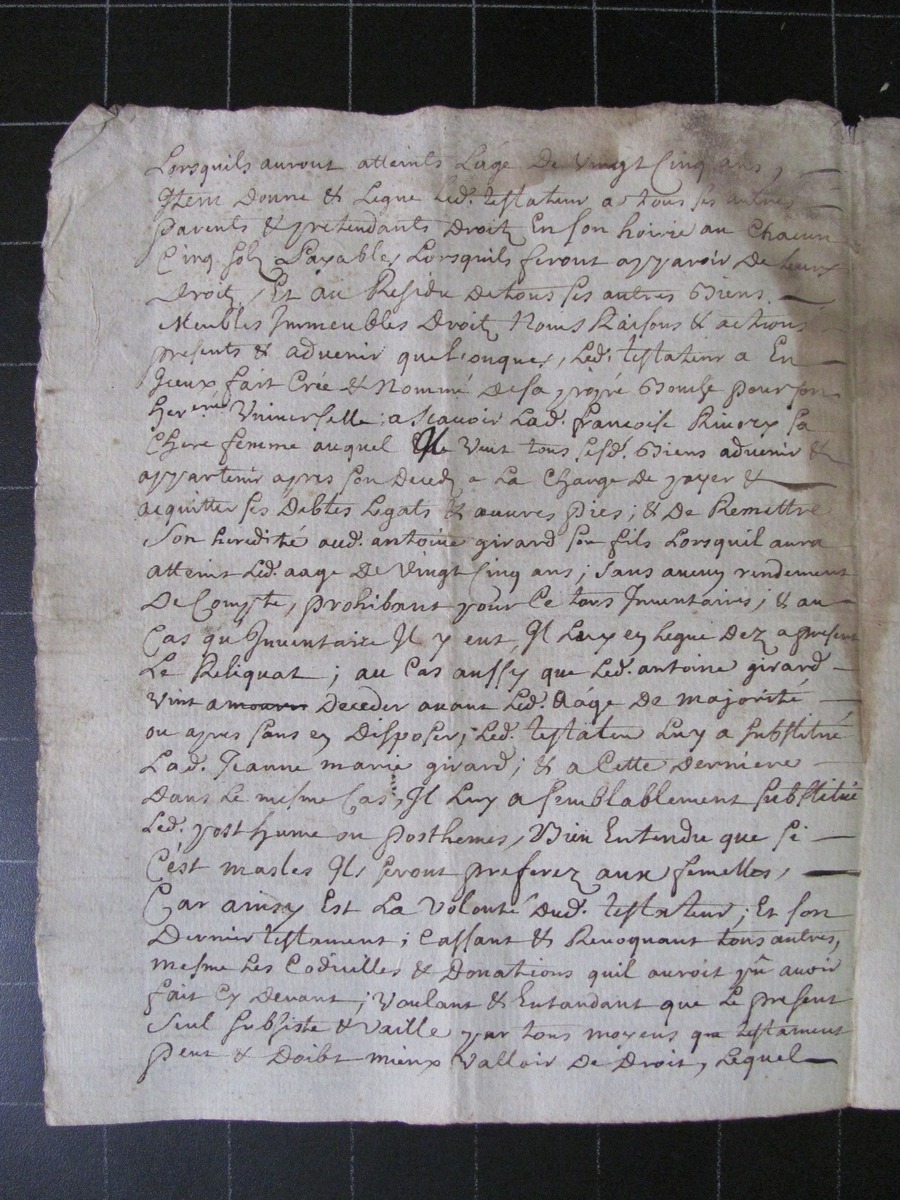 Lorsquils auront atteints Lâge De Vingt Cinq ans,
Jtem Donne & Legue Led. testateur a tous ses autres
parents & pretendants Droitz En son hoirie au Chacun
Cinq solz Payables Lorsquils feront apparoir De Leurs
Droitz, Et au Residu De tous ses autres Biens
Meubles Jmmeubles Droitz Noms Raisons & actions
presents & advenir quelconques, Led. testateur a En
Jceux fait Crée & Nommé De sa propre Bouche pour son
heretiere Vniverselle; a scauoir Lad. francoise
Chere femme auquel Jl Veut tous sesd. Biens advenir &
appartenir apres son Decedz a La Charge De payer &
acquitter ses Debtes Legats & œuures pies; & De Remettre
Son heredité aud. antoine girard son fils Lorsquil aura
atteint Led. aage De Vingt Cinq ans; sans aucun rendement
De Compte, prohibant pour Ce tous Jnuentaires; & au
Cas qu'Jnuentaire Jl y eut, Jl Luy en legue Dez apresent
Le Reliquat; au Cas aussy que Led. antoine girard
Vint a mourir Deceder auant Led. aâge De majorité
ou apres sans en Disposer, Led. testateur Luy a substitué
Lad. Jeanne marie girard; & a Cette Derniere
Dans Le mesme Cas, Jl Luy a semblablement substitué
Led. posthume ou posthemes, Bien Entendu que si
C'est masles Jls seront preferez aux femelles,
Car ainsy Est La Volonté Dud. testateur; Et son
Dernier testament; Cassant & Reuoquant tous autres,
mesme Les Codicilles & Donations quil auroit pû auoir
fait Cy Deuant; Voulant & Entandant que Le present
Seul subsiste & Vaille par tous moyens que testament
peut & Doibt mieux Valloir De Droit, Lequel